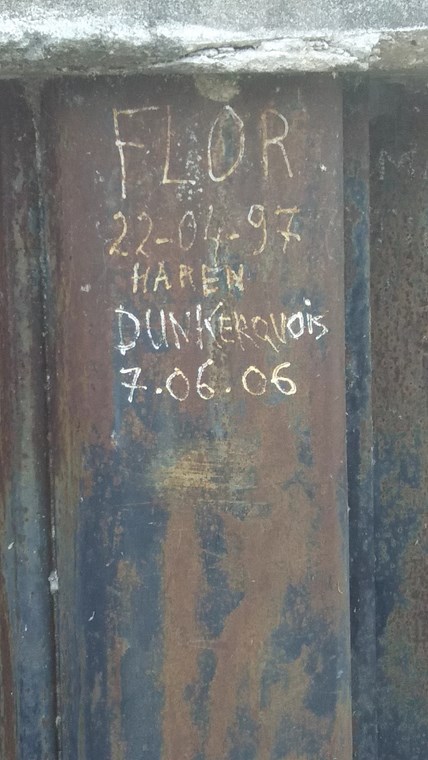 FLOR
22-04-97
HAREN
DUNKERQUOIS
7.06.06